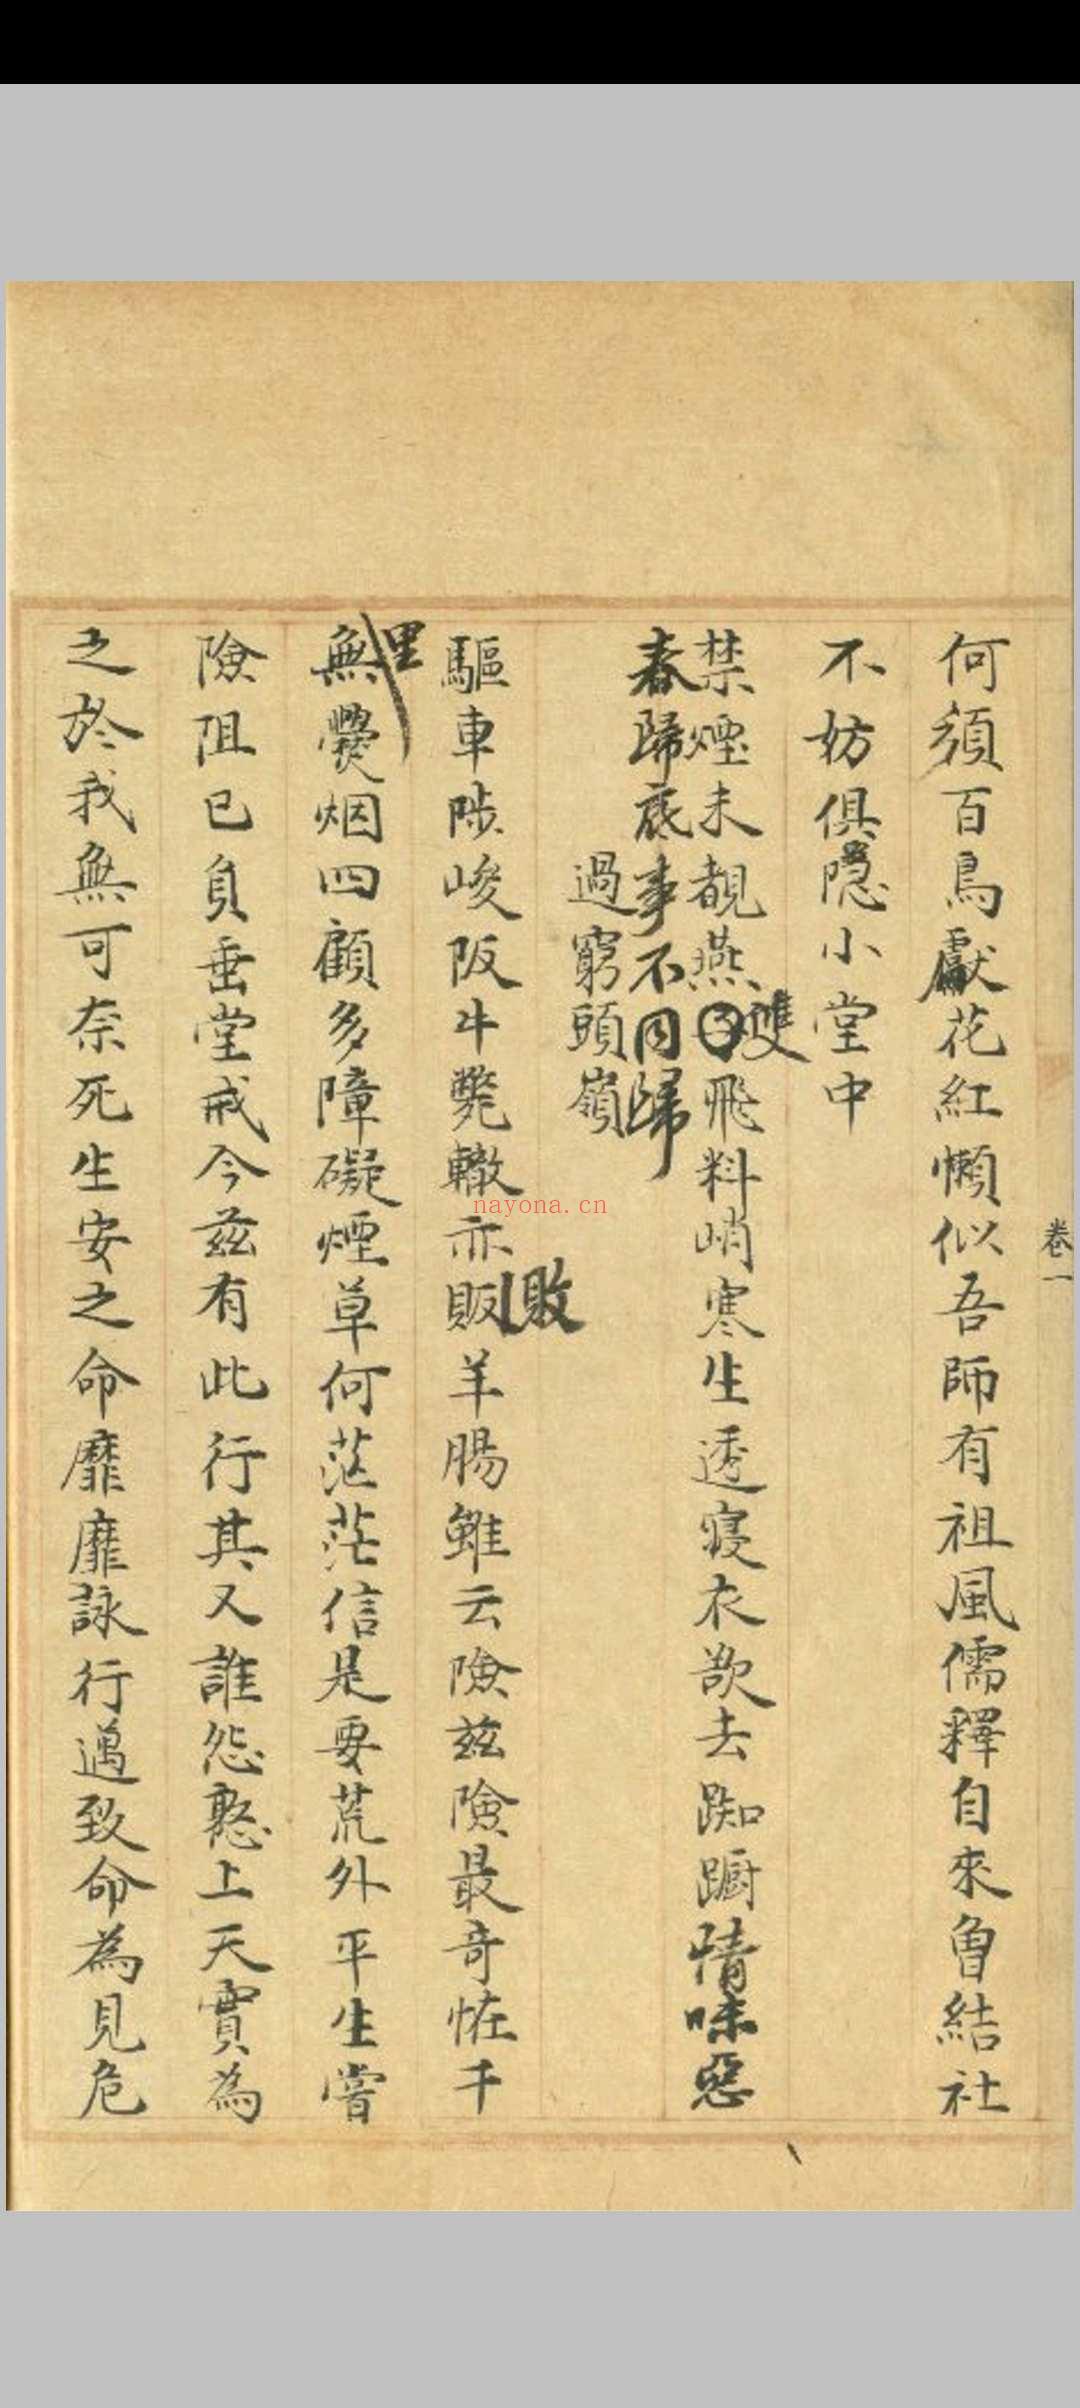 卷一
何須百鳥獻花紅懶似吾師有祖風儒釋自來魯結社
不妨俱隱小堂中
禁煙未覩燕雙飛料峭寒生透寢衣欲去踟躕情味惡
春歸底事不同歸
過窮頭嶺
驅車陟峻阪牛斃轍亦販敗羊腸雖云險茲險最奇恠千
里無爨烟四顧多障礙煙草何茫茫信是要荒外平生嘗
險阻已負垂堂戒今茲有此行其又誰怨憝上天實為
之於我無可奈死生安之命靡靡詠行邁致命為見危
nayona.cn